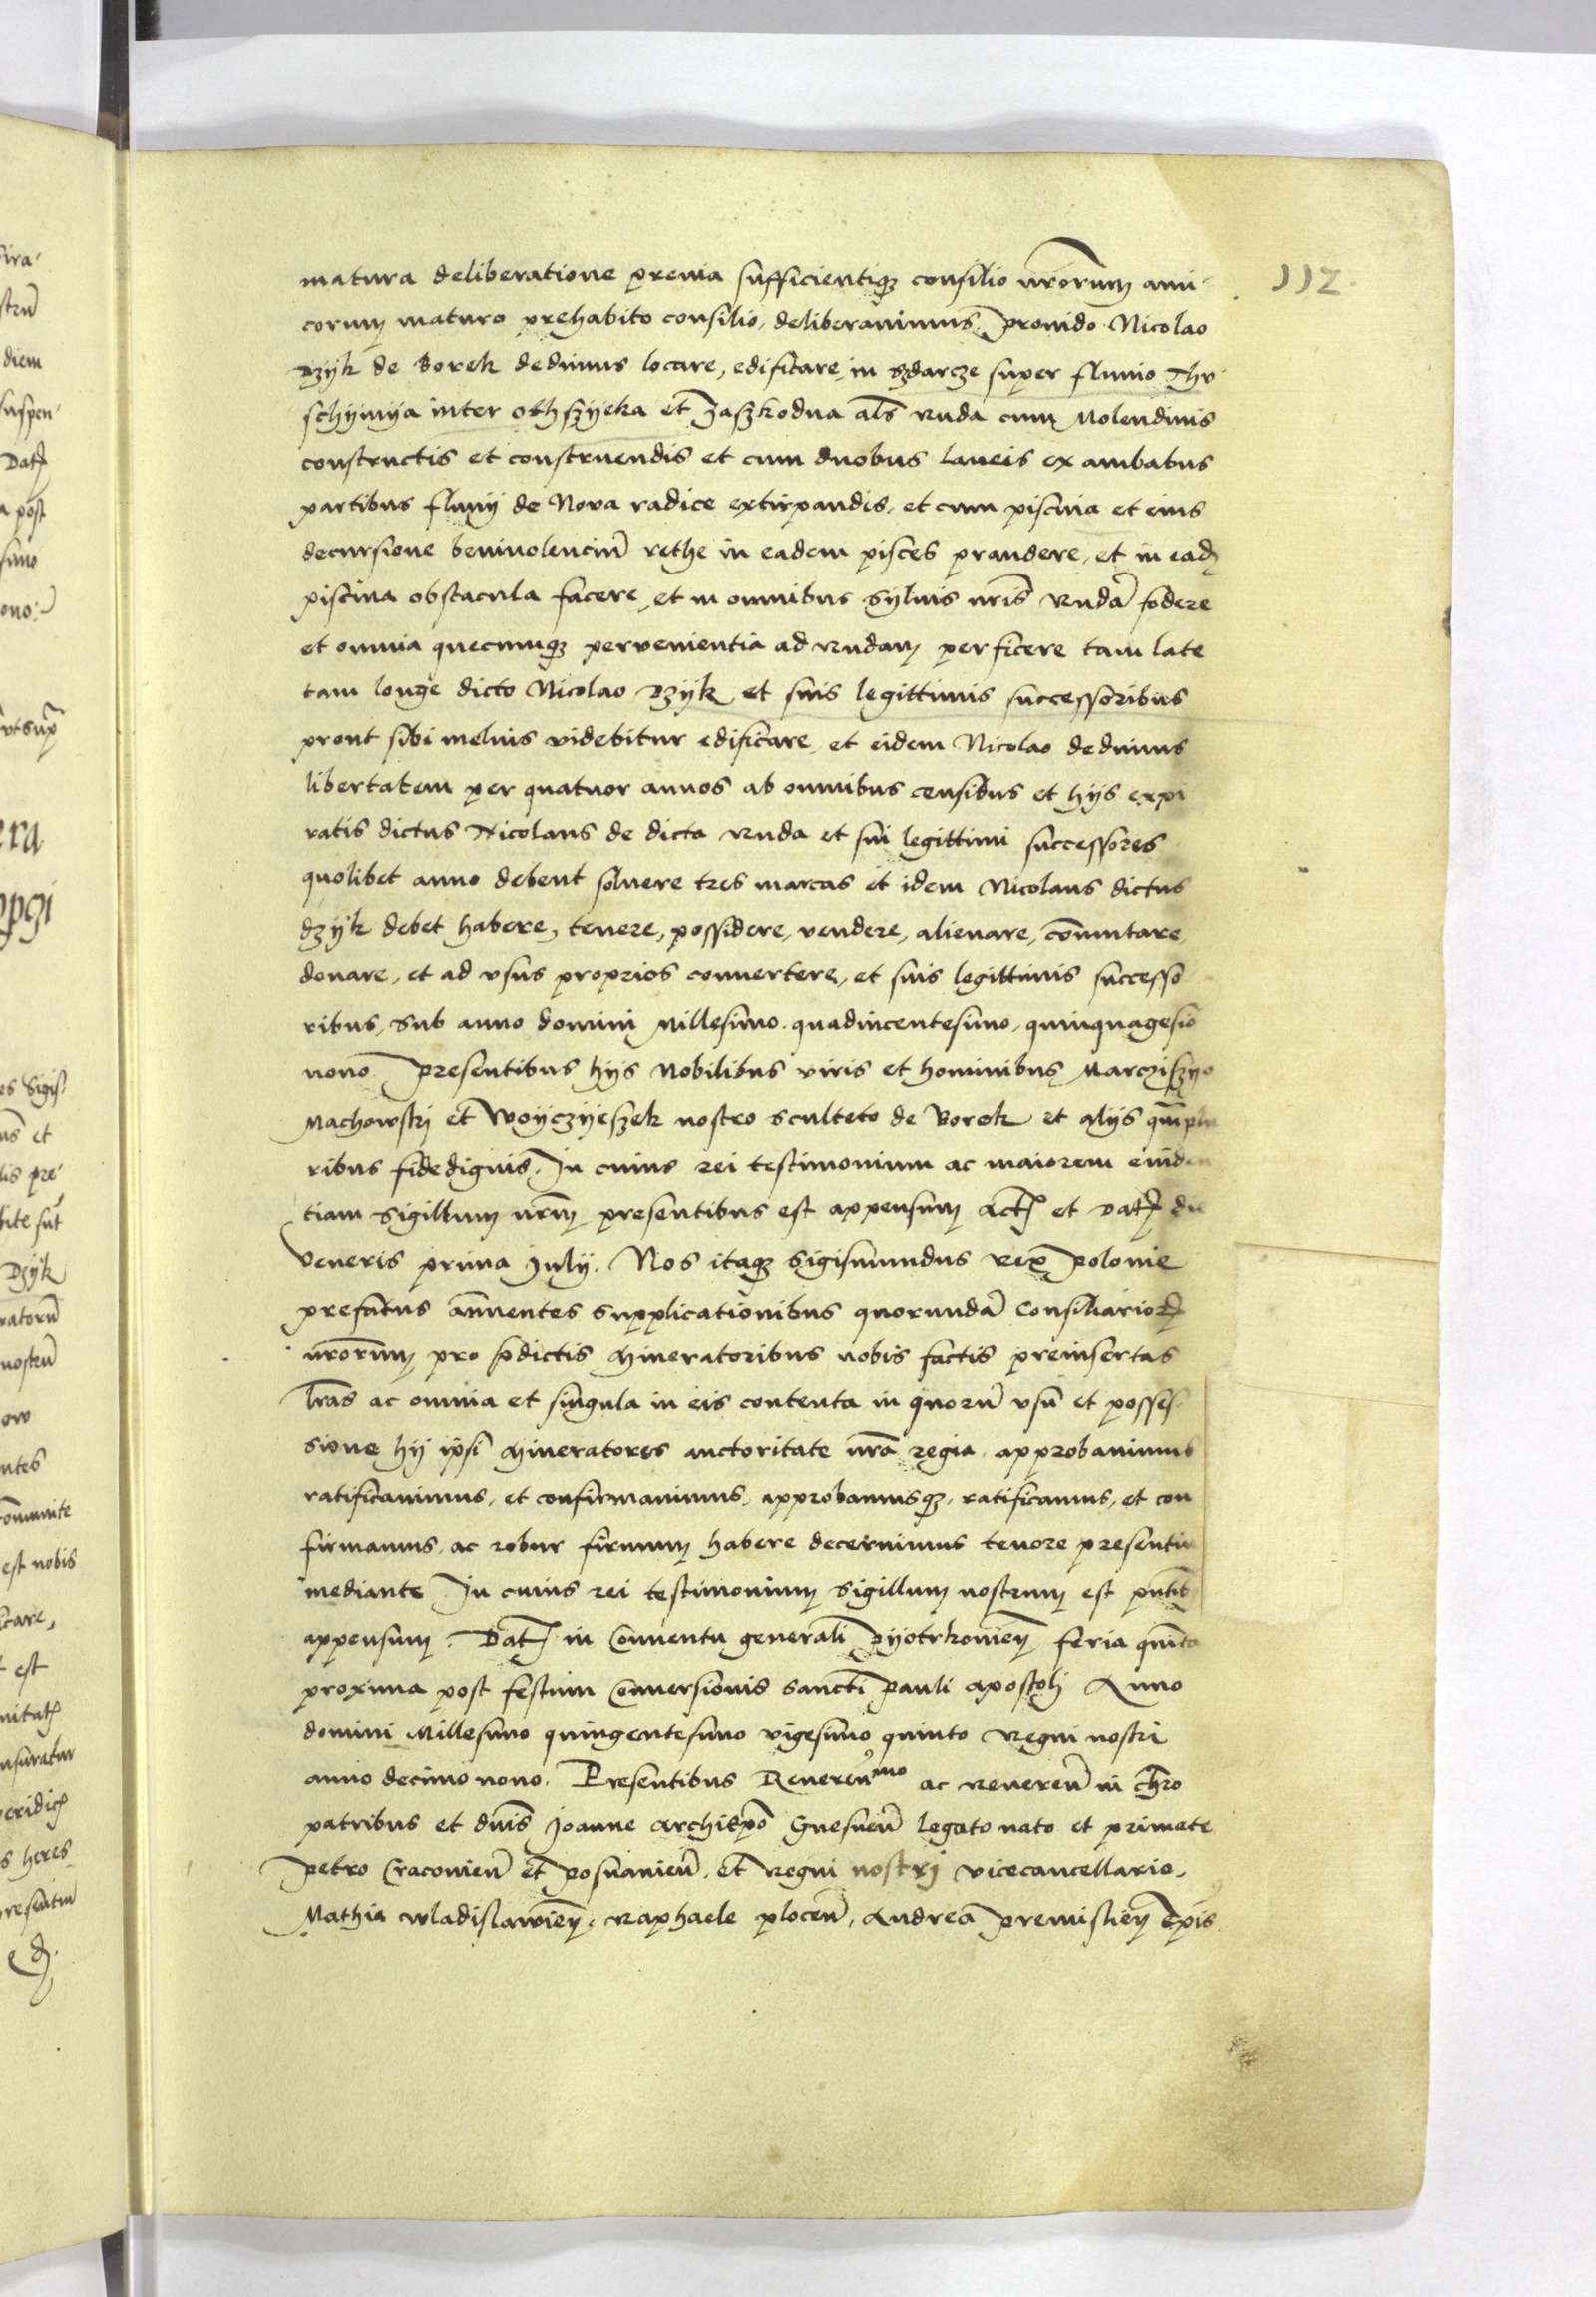 112.
matura deliberatione previa sufficientiqꝫ consilio nrorum ami-
corum maturo prehabito consilio, deliberavimus. Provido Nicolao
Dzyk de Borek dedimus locare, edificare, in Szdarcze super fluvio Thr-
schymya inter othszyeka et Jaszkodna als ruda cum Molendinis
constructis et construendis et cum duobus laneis ex ambabus
partibus fluvij de Nova radice extirpandis, et cum piscina et eius
decursione benivolenciu rethe in eadem pisces prandere, et in eadꝫ
piscina obstacula facere, et in omnibus sylvis nris ruda fodere
et omnia quecumqꝫ pervenientia ad rudam perficere tam late
tam longe dicto Nicolao Dzyk et suis legittimis successoribus
prout sibi melius videbitur edificare, et eidem Nicolao dedimus
libertatem per quatuor annos ab omnibus censibus et hijs expi
ratis dictus Nicolaus de dicta ruda et sui legittimi successores
quolibet anno debent solvere tres marcas et idem Nicolaus dictus
dzyk debet habere, tenere, possidere, vendere, alienare, comutare,
donare, et ad usus proprios convertere, et suis legittimis successo
ribus, Sub anno domini Millesimo quadincentesimo, quinquagesio
nono. Presentibus hijs Nobilibus viris et hominibus Marcziszyo
Machowskj et Woyczyeszek nostro sculteto de Borek et alijs qmplu
ribus fidedignis. In cuius rei testimonium ac maiorem eviden
tiam Sigillum nrm presentibus est appensum Act et Dat die
Veneris prima Julij. Nos itaqꝫ Sigismundus Rex Polonie
prefatus annuentes supplicationibus quorunda Consiliarioꝝ
nrorum pro pdictis Mineratoribus nobis factis preinsertas
lras ac omnia et singula in eis contenta in quoru usu et posses-
sione hij ipsi Mineratores auctoritate nra regia approbavimus
ratificavimus, et confirmavimus, approbamusqꝫ, ratificamus, et con
firmamus, ac robur firmum habere decernimus tenore presentiu
mediante In cuius rei testimonium Sigillum nostrum est pntib
appensum. Dat in Conventu generali Pyotrkovien feria quita
proxima post festum Conversionis Sancti Pauli apostoli Anno
domini Millesimo quingentesimo vigesimo quinto Regni nostri
anno decimo nono. Presentibus Reverenmo ac Reveren in Chro
patribus et dnis Joanne Archiepo Gnesnen legato nato et primate
Petro Cracovien et Posnanien, et Regni nostrj vicecancellario,
Mathia Wladislavien, Raphaele plocen, Andrea Premislien Epis